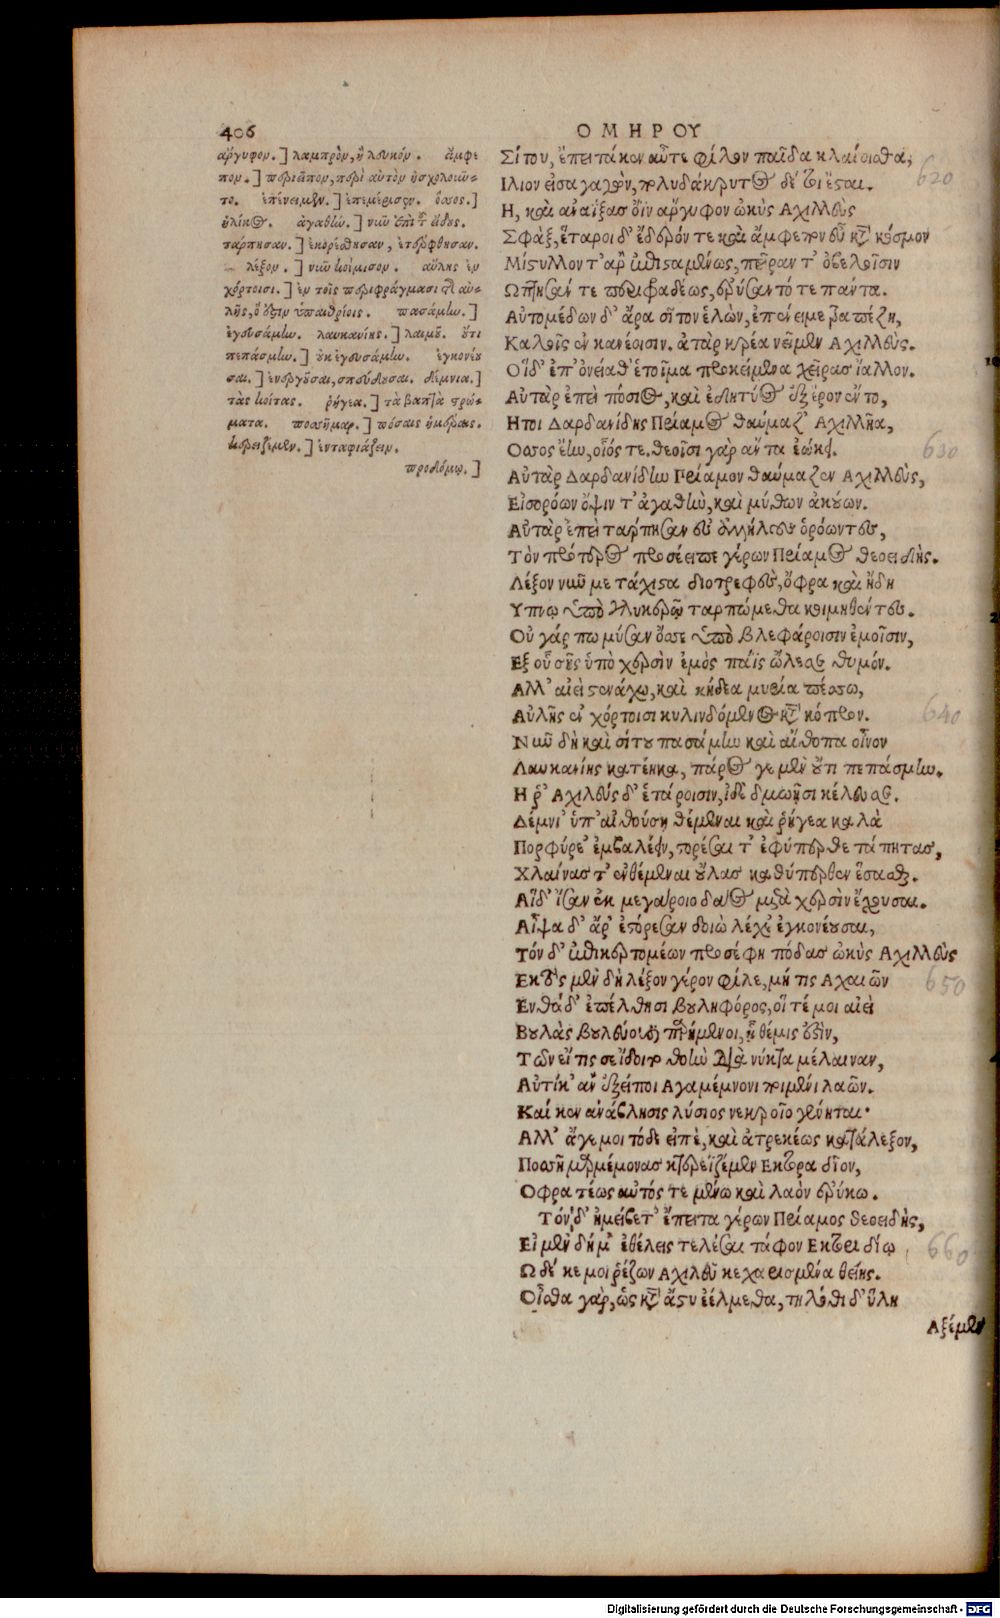 406
ΟΜΗΡΟΥ
ἄργυφον.] λαμπρὸν, ἢ λευκόν. ἄμφε
πον.] περιεῖπον, περὶ αὐτὸν ἠσχολοιῶ-
το. ἐπένειμεν.] ἐπεμέρισεν. ὅσος.]
ἡλίκος. ἀγαθὴν.] νῦν ἐπὶ τῆς
τάρπησαν.] ἐκορέσθησαν, ἐτέρφθησαν.
λέξον.] νῦν κοίμισον. αὐλῆς ἐν
χόρτοισι.] ἐν τοῖς περιφράγμασι τῆς αὐ-
λῆς, ὅ ἐστιν ὑπαιθρίοις. πασάμην.]
ἐγευσάμην. λαυκανίης.] λαιμοῦ. οὔτι
πεπάσμην.] οὐκ ἐγευσάμην. ἐγκονέου
σαι.] ἐνεργοῦσαι, σπεύδουσαι. δέμνια.]
τὰς κοίτας. ῥήγεα.] τὰ βαπτὰ στρώ-
ματα. ποσσῆμαρ.] πόσαις ἡμέραις.
κτερεϊζέμεν.] ἐνταφιάζειν.
προδόμῳ.]
Σίτου, ἔπειτά κεν αὖτε φίλον παῖδα κλαίοισθα,
Ιλιον εἰσαγαγὼν, πολυδάκρυτος δέ τοι ἔσται.
620
Η, καὶ ἀναΐξας ὄϊν ἄργυφον ὠκὺς Αχιλλεὺς
Σφάξ, ἕταροι δ' ἔδερόν τε καὶ ἄμφεπον εὖ κατὰ κόσμον
Μίστυλλόν τ' ἄρ' ἐπισταμένως, πεῖράν τ' ὀβελοῖσιν
Ωπτησάν τε περιφραδέως, ἐρύσαντό τε πάντα.
Αὐτομέδων δ' ἄρα σῖτον ἑλὼν, ἐπένειμε τραπέζῃ,
Καλοῖς ἐν κανέοισιν. ἀτὰρ κρέα νεῖμεν Αχιλλεύς.
Οἱ δ' ἐπ' ὀνείαθ' ἑτοῖμα προκείμενα χεῖρας ἴαλλον.
Αὐτὰρ ἐπεὶ πόσιος, καὶ ἐδητύος ἐξ ἔρον ἕντο,
Ητοι Δαρδανίδης Πρίαμος θαύμαζ' Αχιλῆα,
Οσσος ἔην, οἷός τε. θεοῖσι γὰρ ἄντα ἐῴκει.
630
Αὐτὰρ Δαρδανίδην Πρίαμον θαύμαζεν Αχιλλεὺς,
Εἰσορόων ὄψιν τ' ἀγαθὴν, καὶ μύθων ἀκούων.
Αὐτὰρ ἐπεὶ τάρπησαν ἐς ἀλλήλους ὁρόωντες,
Τὸν πρότερος προσέειπε γέρων Πρίαμος θεοειδής.
Λέξον νῦν με τάχιστα διοτρεφὲς, ὄφρα καὶ ἤδη
Υπνῳ ὑπὸ γλυκερῷ ταρπώμεθα κοιμηθέντες.
Οὐ γάρ πω μύσαν ὄσσε ὑπὸ βλεφάροισιν ἐμοῖσιν,
Εξ οὗ σῇς ὑπὸ χερσὶν ἐμὸς πάϊς ὤλεσε θυμόν.
Αλλ' αἰεὶ στενάχω, καὶ κήδεα μυρία πέσσω,
Αὐλῆς ἐν χόρτοισι κυλινδόμενος κατὰ κόπρον.
640
Νῦν δὴ καὶ σίτου πασάμην καὶ αἴθοπα οἶνον
Λαυκανίης καθέηκα, πάρος γε μὲν οὔτι πεπάσμην.
Η ῥ' Αχιλεὺς δ' ἑτάροισιν, ἰδὲ δμωῇσι κέλευσε.
Δέμνι' ὑπ' αἰθούσῃ θέμεναι καὶ ῥήγεα καλὰ
Πορφύρε' ἐμβαλέειν, στορέσαι τ' ἐφύπερθε τάπητας,
Χλαίνας τ' ἐνθέμεναι οὔλας καθύπερθεν ἕσασθαι.
Αἱ δ' ἴσαν ἐκ μεγάροιο δάος μετὰ χερσὶν ἔχουσαι.
Αἶψα δ' ἄρ' ἐστόρεσαν δοιὼ λέχε' ἐγκονέουσαι,
Τὸν δ' ἐπικερτομέων προσέφη πόδας ὠκὺς Αχιλλεὺς
Εκτὸς μὲν δὴ λέξον γέρον φίλε, μή τις Αχαιῶν
650
Ενθάδ' ἐπέλθησι βουληφόρος, οἵ τέ μοι αἰεὶ
Βουλὰς βουλεύουσι παρήμενοι, ἣ θέμις ἐστὶν,
Τῶν εἴ τίς σε ἴδοιτο θοὴν διὰ νύκτα μέλαιναν,
Αὐτίκ' ἂν ἐξείποι Αγαμέμνονι ποιμένι λαῶν.
Καί κεν ἀνάβλησις λύσιος νεκροῖο γένηται·
Αλλ' ἄγε μοι τόδε εἰπὲ, καὶ ἀτρεκέως κατάλεξον,
Ποσσῆμαρ μέμονας κτερεϊζέμεν Εκτορα δῖον,
Οφρα τέως αὐτός τε μένω καὶ λαὸν ἐρύκω.
Τὸν δ' ἠμείβετ' ἔπειτα γέρων Πρίαμος θεοειδὴς,
Εἰ μὲν δή μ' ἐθέλεις τελέσαι τάφον Εκτορι δίῳ
660
Ωδέ κέ μοι ῥέζων Αχιλεῦ κεχαρισμένα θείης.
Οἶσθα γὰρ, ὡς κατὰ ἄστυ ἐέλμεθα, τηλόθι δ' ὕλη
Αξέμεν
Digitalisierung gefördert durch die Deutsche Forschungsgemeinschaft - DFG